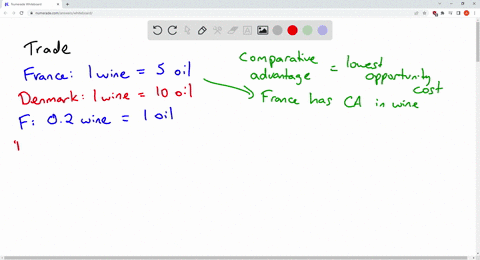 Trade
France: 1 wine = 5 oil
Denmark: 1 wine = 10 oil
F: 0.2 wine = 1 oil
comparative advantage = lowest opportunity cost
France has CA in wine